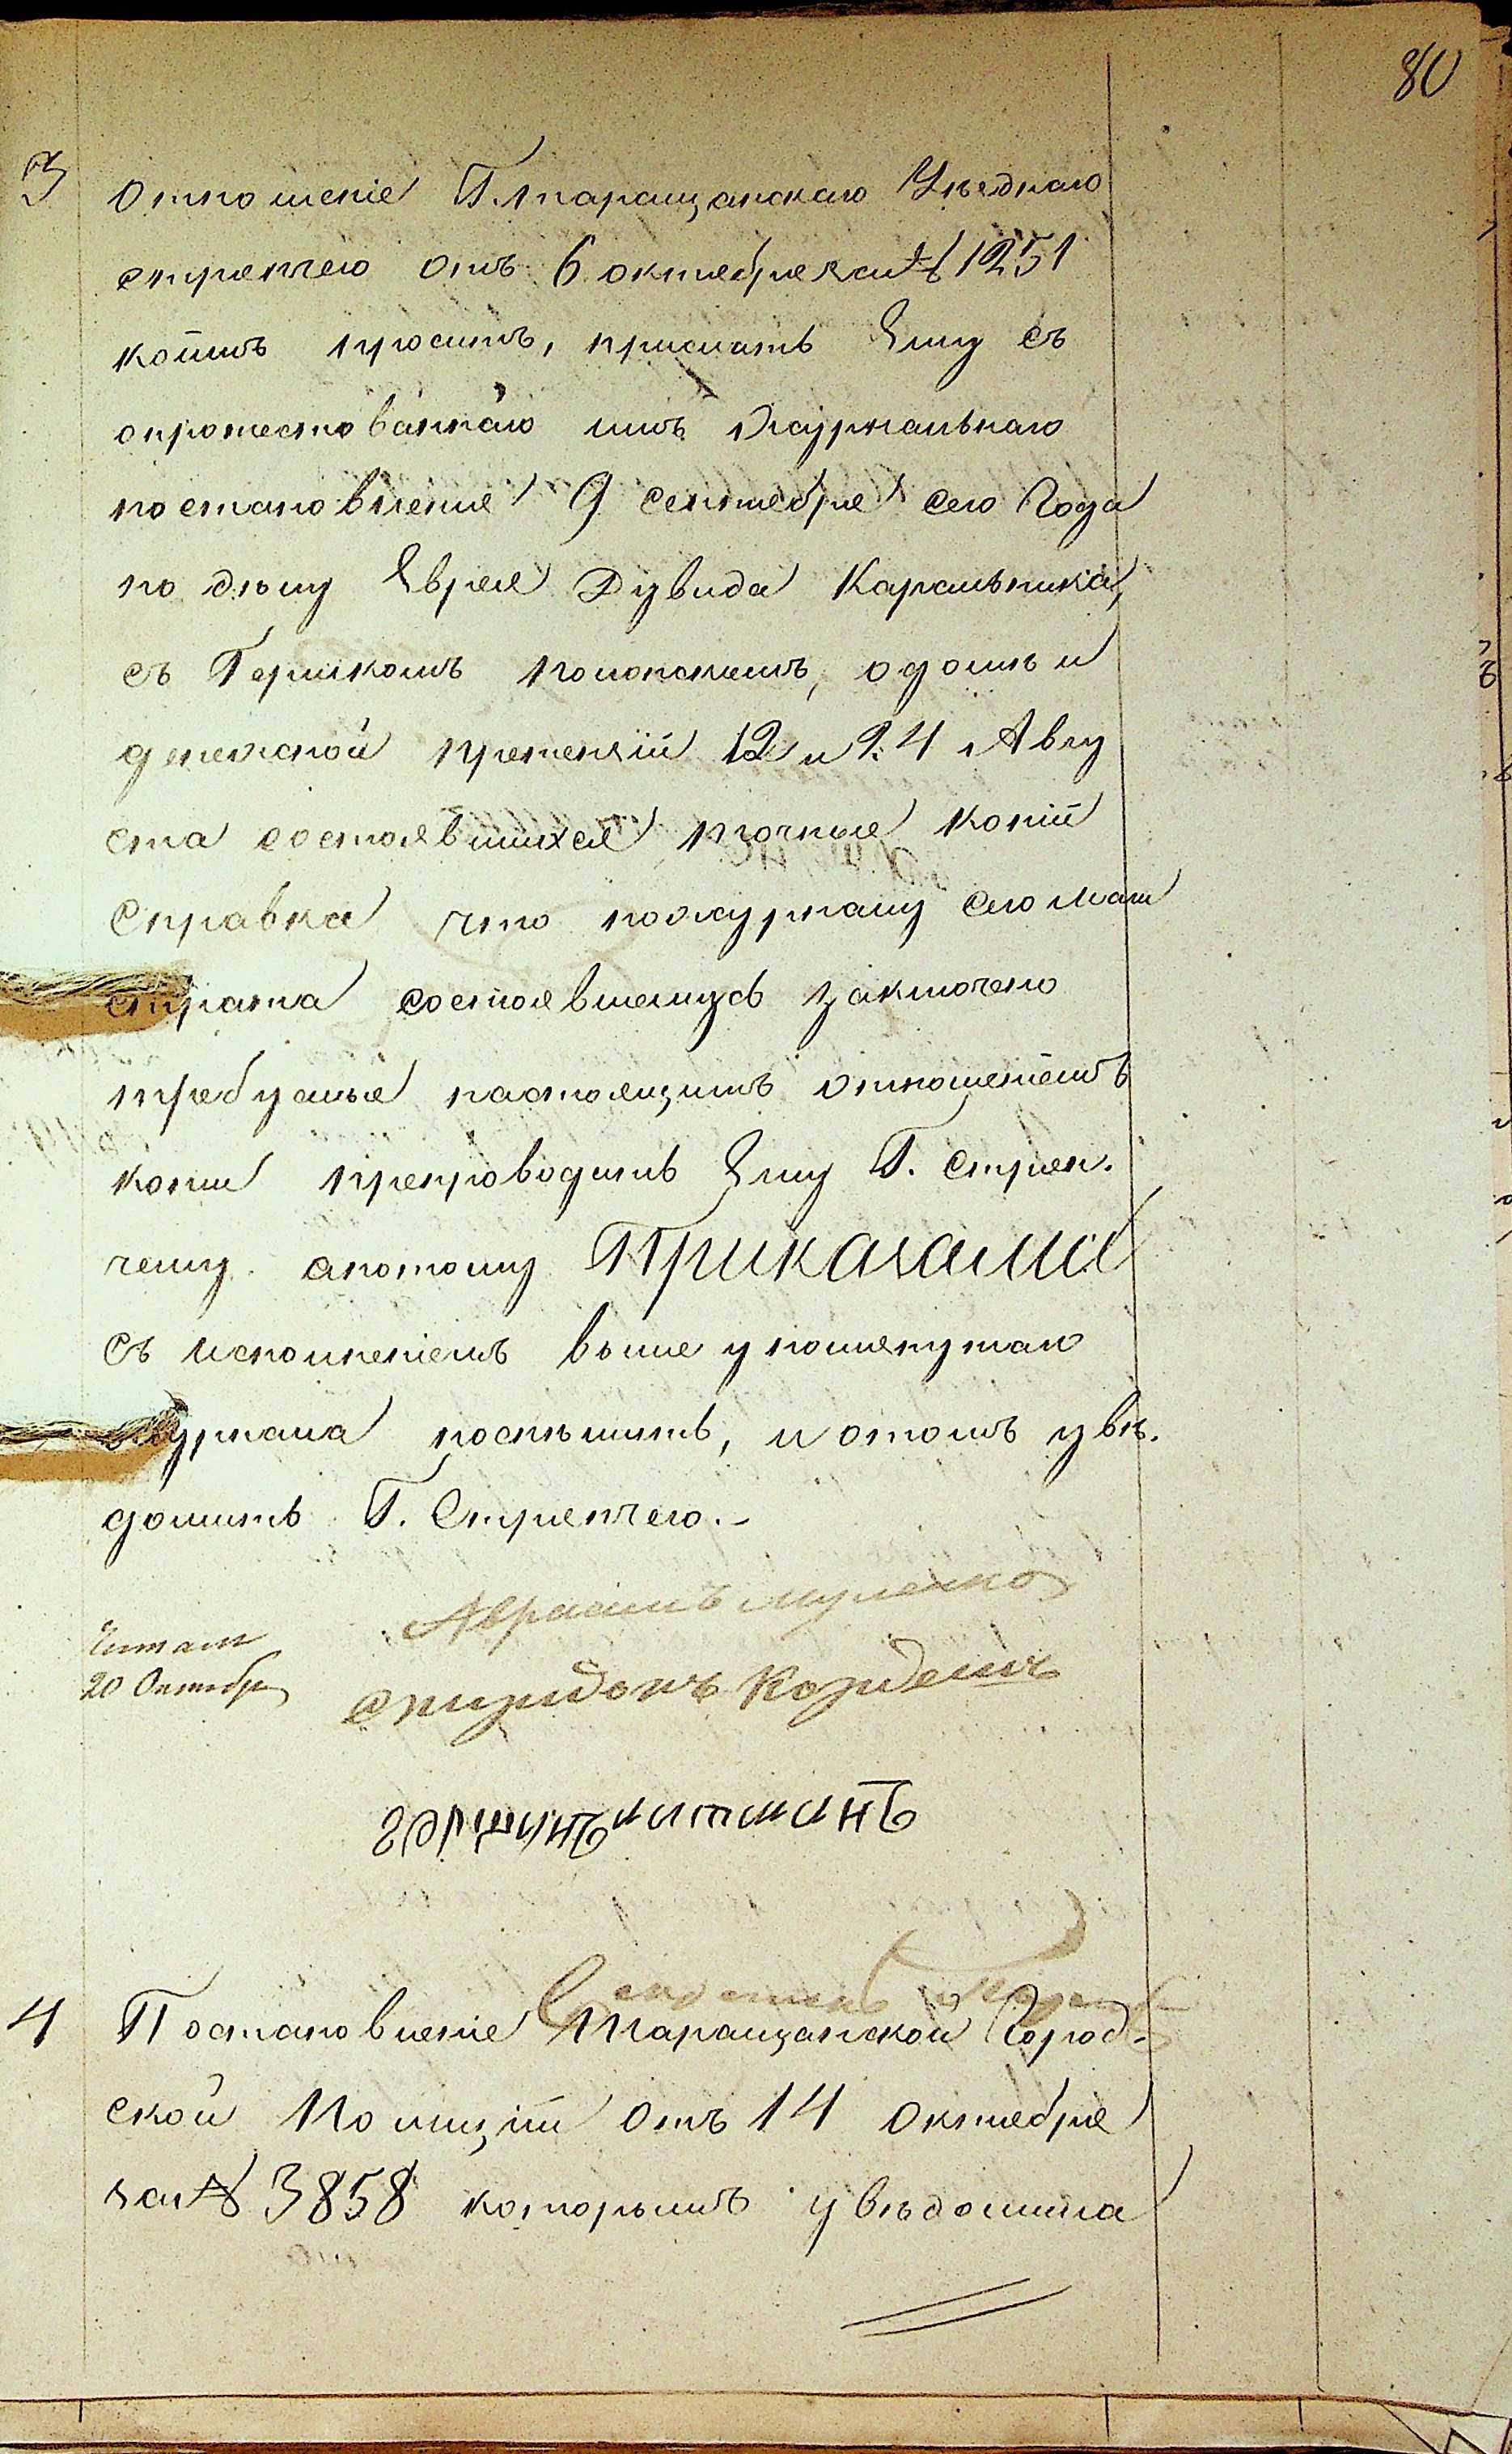 80
3 Отношеніе Г. Таращанскаго Уѣзднаго
стрепчего отъ 6 октебре за № 1251
коимъ проситъ, прислать Ему съ
опротестованнаго имъ Журнальнаго
постановление 9 сентебре сего Года
по дѣлу Еврея Дувида Каральника,
съ Гершкомъ Полонскимъ, одомѣ и
денежной претензіи 12 и 24 Авгу
ста состоявшихся точные копіи
Справка что пожурналу сего Маги
страта состоявшемусь заключено
требуемые настоящимъ отношеніемъ
копии препроводить Ему Г. стреп.
чему. апотому Приказали
съ исполненіемъ выше упомянутаго
Журнала поспѣшить, и отомъ увѣ.
домить Г. Стрепчего.-
Читалъ
20 Октебре
Авраамъ
Спиридонъ
4 Постановленіе Таращанской Город-
ской Полиціи отъ 14 Октебре
за № 3858 которымъ увѣдомила